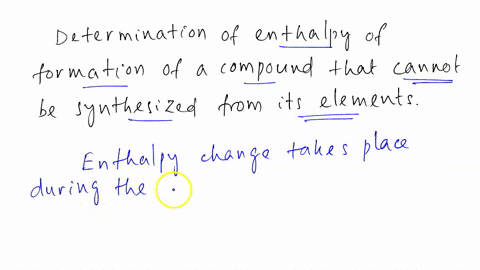 Determination of enthalpy of
formation of a compound that cannot
be synthesized from its elements.
Enthalpy change takes place
during the